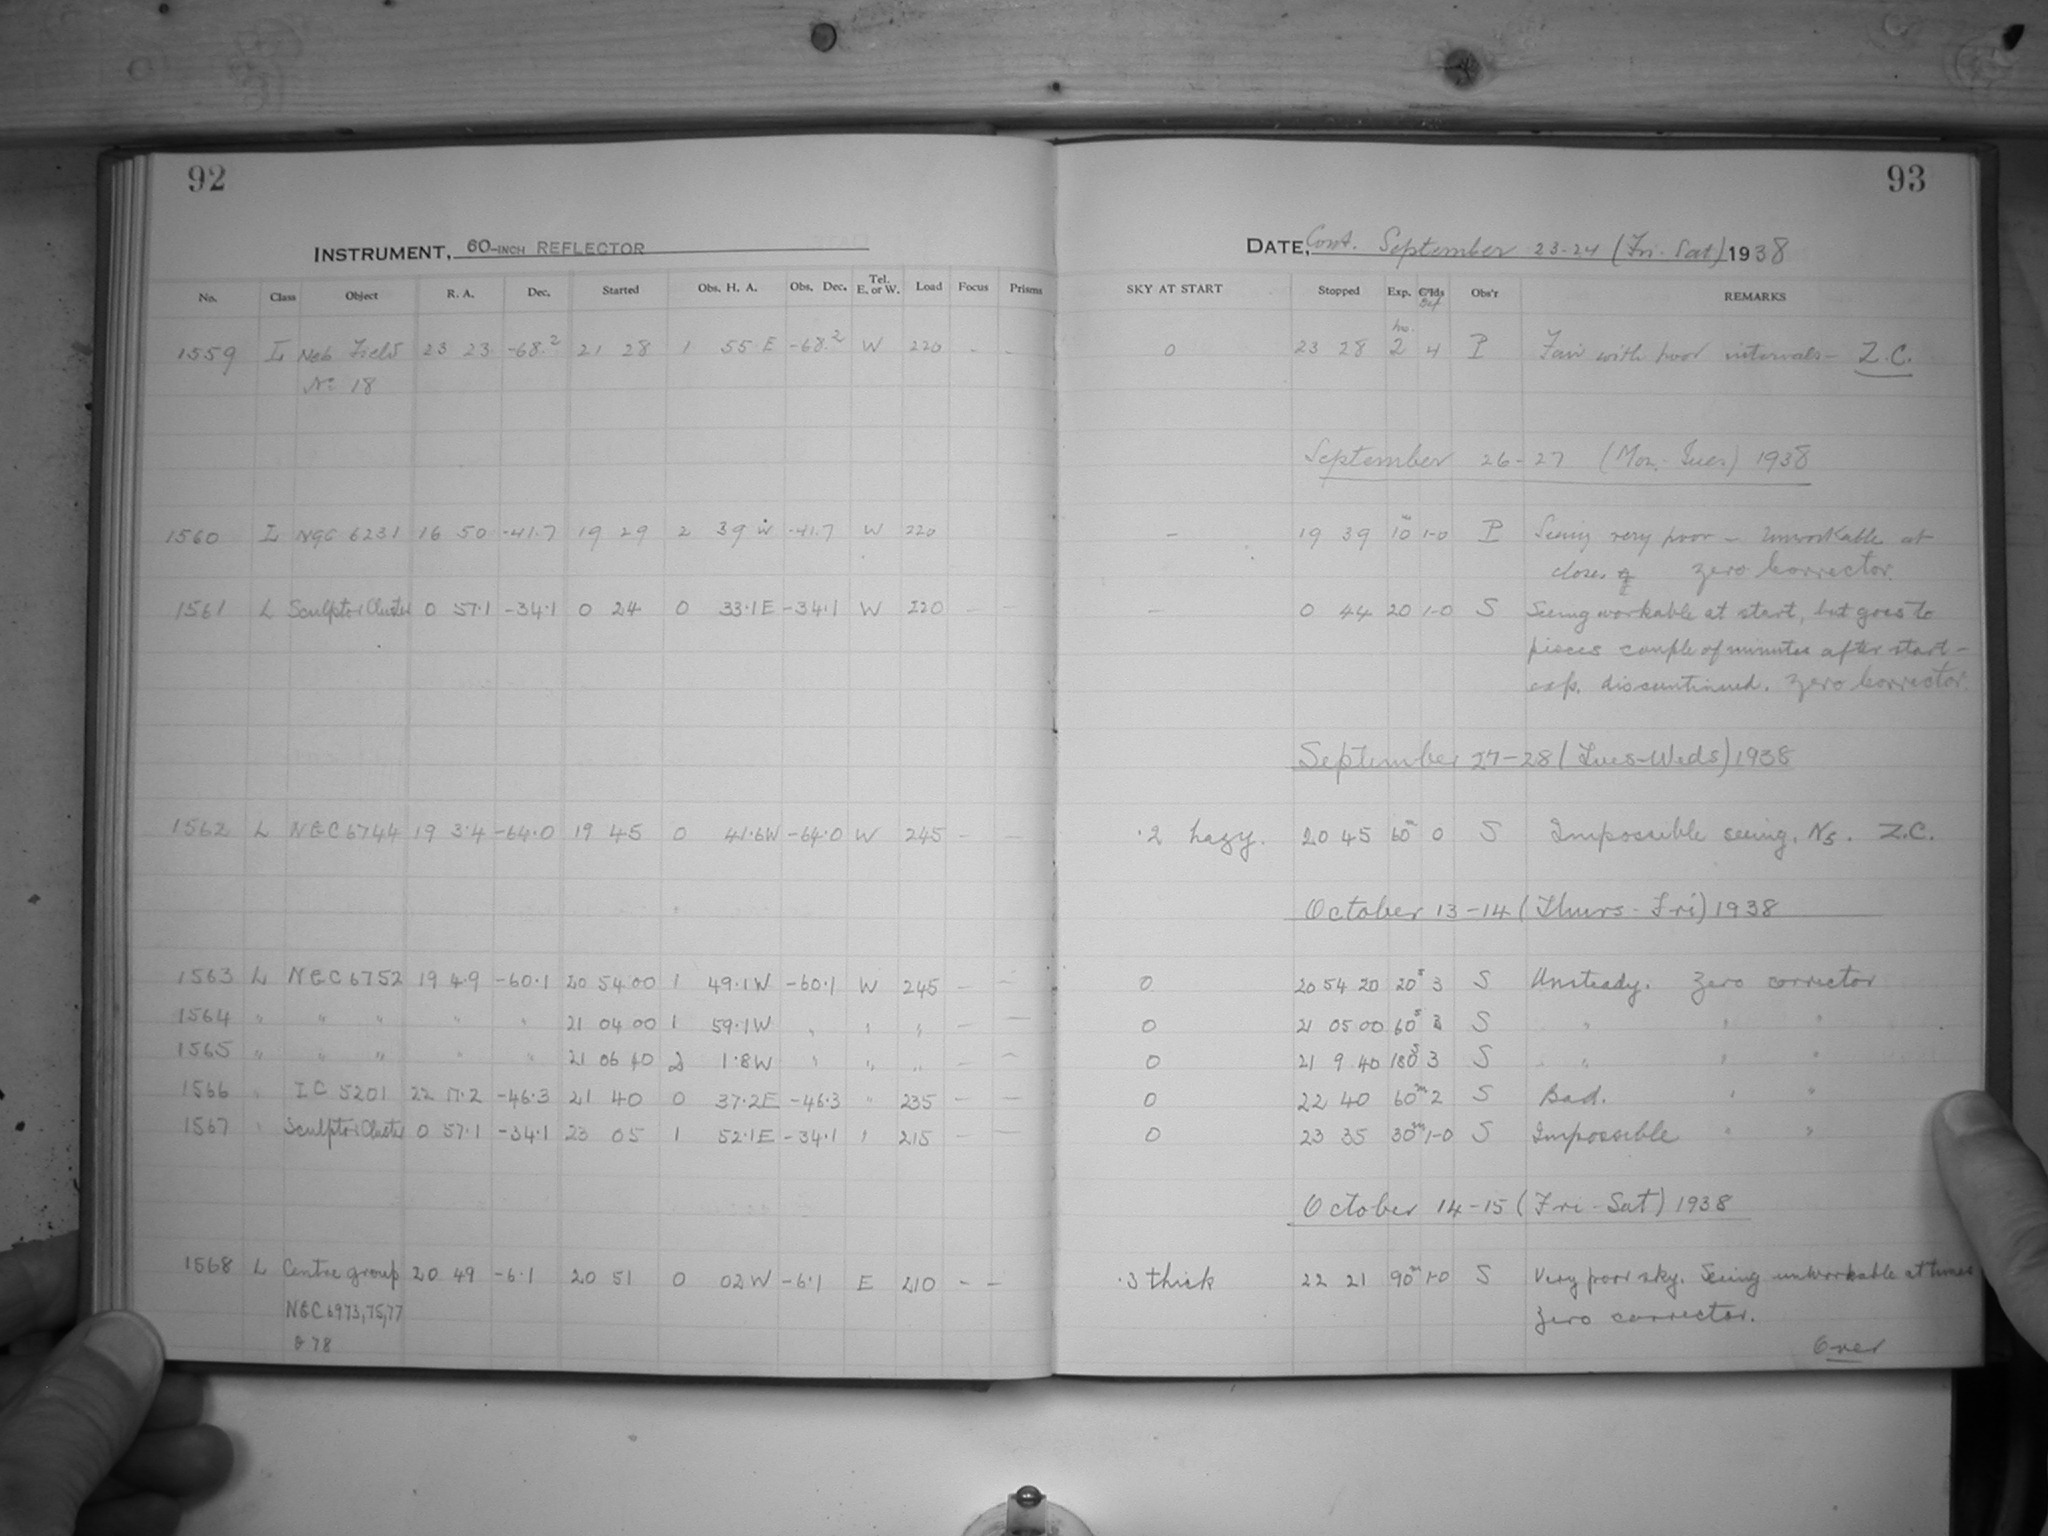 92
INSTRUMENT, 60-INCH REFLECTOR
No. Class Object R. A. Dec. Started Obs. H. A. Obs. Dec. Tel. E. or W. Load Focus Prisms
1559 L Neb Field 23 23 -68.2 21 28 1 55 E -68.2 W 220 - -
No 18
1560 L NGC 6231 16 50 -41.7 19 29 2 39 W -41.7 W 220
1561 L Sculptor Cluster 0 57.1 -34.1 0 24 0 33.1E -34.1 W 220 - -
1562 L NGC 6744 19 3.4 -64.0 19 45 0 41.6W -64.0 W 245 - -
1563 L NGC 6752 19 4.9 -60.1 20 54 00 1 49.1W -60.1 W 245 - -
1564 " " " " " 21 04 00 1 59.1W " " " - -
1565 " " " " " 21 06 40 2 1.8W " " " - -
1566 " IC 5201 22 17.2 -46.3 21 40 0 37.2E -46.3 " 235 - -
1567 " Sculptor Cluster 0 57.1 -34.1 23 05 1 52.1E -34.1 " 215 - -
1568 L Centre group 20 49 -6.1 20 51 0 02W -6.1 E 210 - -
NGC 6973,75,77
& 78
93
DATE, Cont. September 23-24 (Fri-Sat) 1938
SKY AT START Stopped Exp. Obs'r REMARKS
0 23 28 2 hr. 4 P Fair with poor intervals - Z.C.
September 26-27 (Mon-Tues) 1938
- 19 39 10m 1-0 P Seeing very poor - unworkable at
close. zero corrector.
- 0 44 20 1-0 S Seeing workable at start, but goes to
pieces couple of minutes after start -
exp. discontinued. Zero corrector.
September 27-28 (Tues-Weds) 1938
.2 hazy. 20 45 60m 0 S Impossible seeing. N5. Z.C.
October 13-14 (Thurs-Fri) 1938
0 20 54 20 20s 3 S Unsteady. Zero corrector
0 21 05 00 60s 3 S " " "
0 21 9 40 180s 3 S " " "
0 22 40 60m 2 S Bad. " "
0 23 35 30m 1-0 S Impossible " "
October 14-15 (Fri-Sat) 1938
.3 thick 22 21 90m 1-0 S Very poor sky. Seeing unworkable at times
Zero corrector.
Over